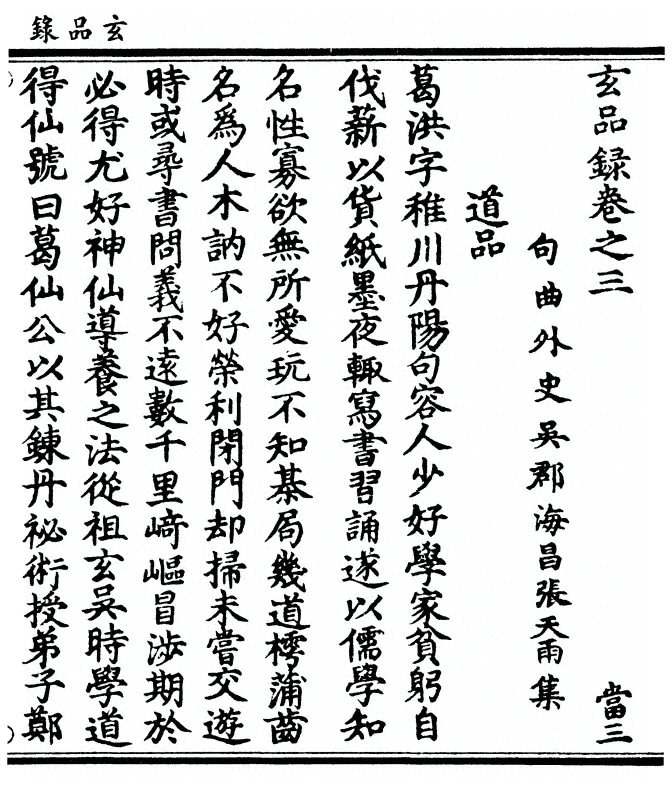 玄品錄
玄品録卷之三
當三
句曲外史吳郡海昌張天雨集
道品
葛洪字稚川丹陽句容人少好學家貧躬自
伐薪以貨紙墨夜輒寫書習誦遂以儒學知
名性寡欲無所愛玩不知棊局幾道樗蒲齒
名爲人木訥不好榮利閉門却掃未嘗交遊
時或尋書問義不遠數千里崎嶇冒涉期於
必得尤好神仙導養之法從祖玄吳時學道
得仙號曰葛仙公以其鍊丹祕術授弟子鄭